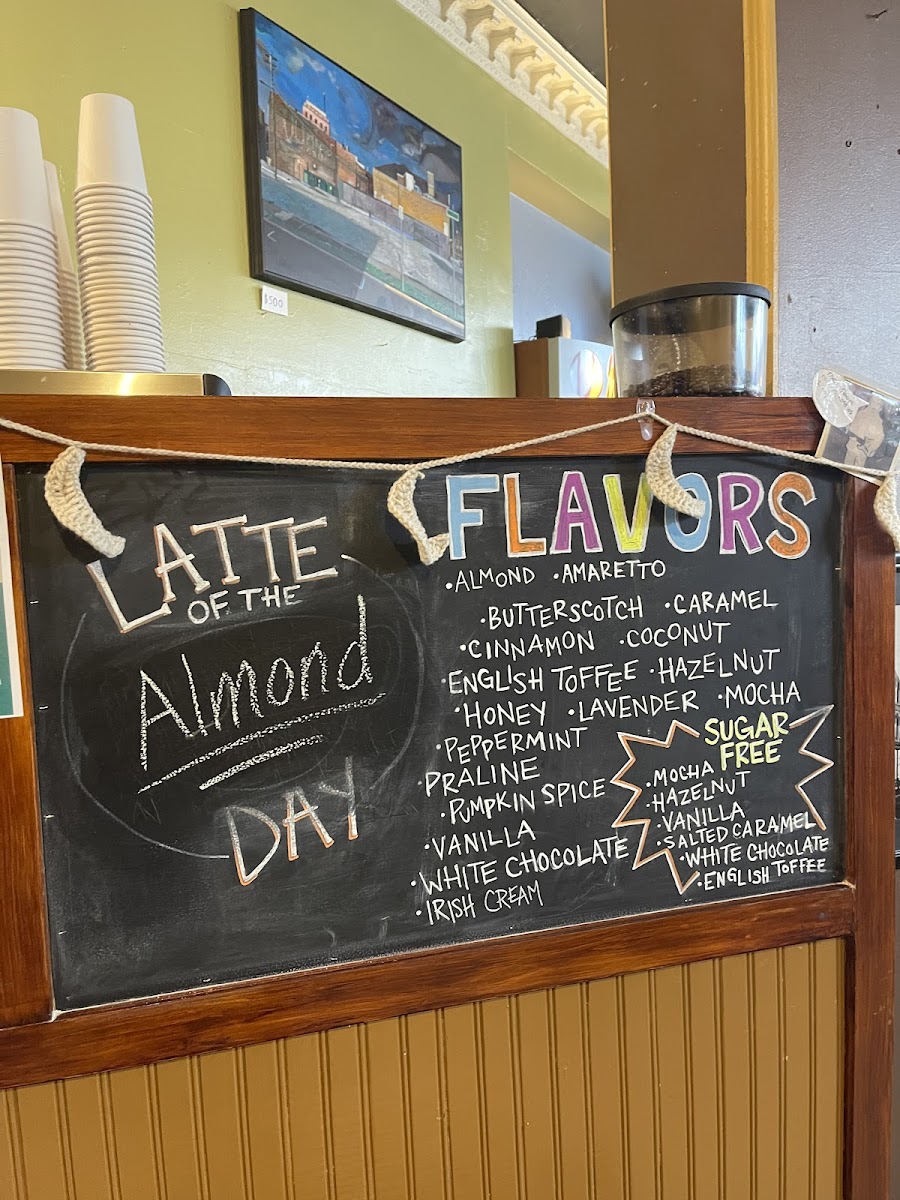 $500
LATTE
OF THE
Almond
DAY
FLAVORS
•ALMOND •AMARETTO
•BUTTERSCOTCH •CARAMEL
•CINNAMON •COCONUT
•ENGLISH TOFFEE •HAZELNUT
•HONEY •LAVENDER •MOCHA
•PEPPERMINT
•PRALINE
•PUMPKIN SPICE
•VANILLA
•WHITE CHOCOLATE
•IRISH CREAM
SUGAR
FREE
•MOCHA
•HAZELNUT
•VANILLA
•SALTED CARAMEL
•WHITE CHOCOLATE
•ENGLISH TOFFEE